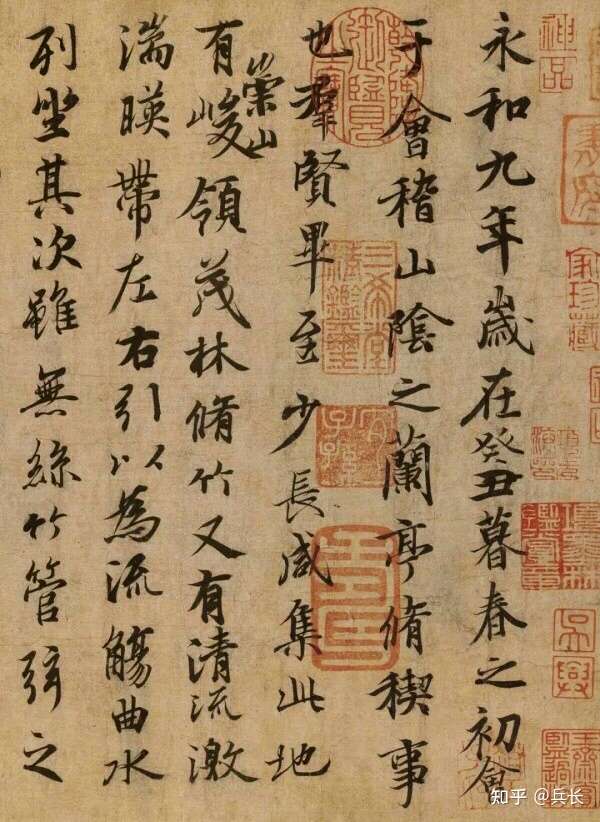 永和九年歲在癸丑暮春之初會
于會稽山陰之蘭亭脩稧事
也羣賢畢至少長咸集此地
有崇山峻領茂林脩竹又有清流激
湍暎帶左右引以為流觴曲水
列坐其次雖無絲竹管弦之
神品
三希堂精鑑璽
家珍藏
知乎 @兵长